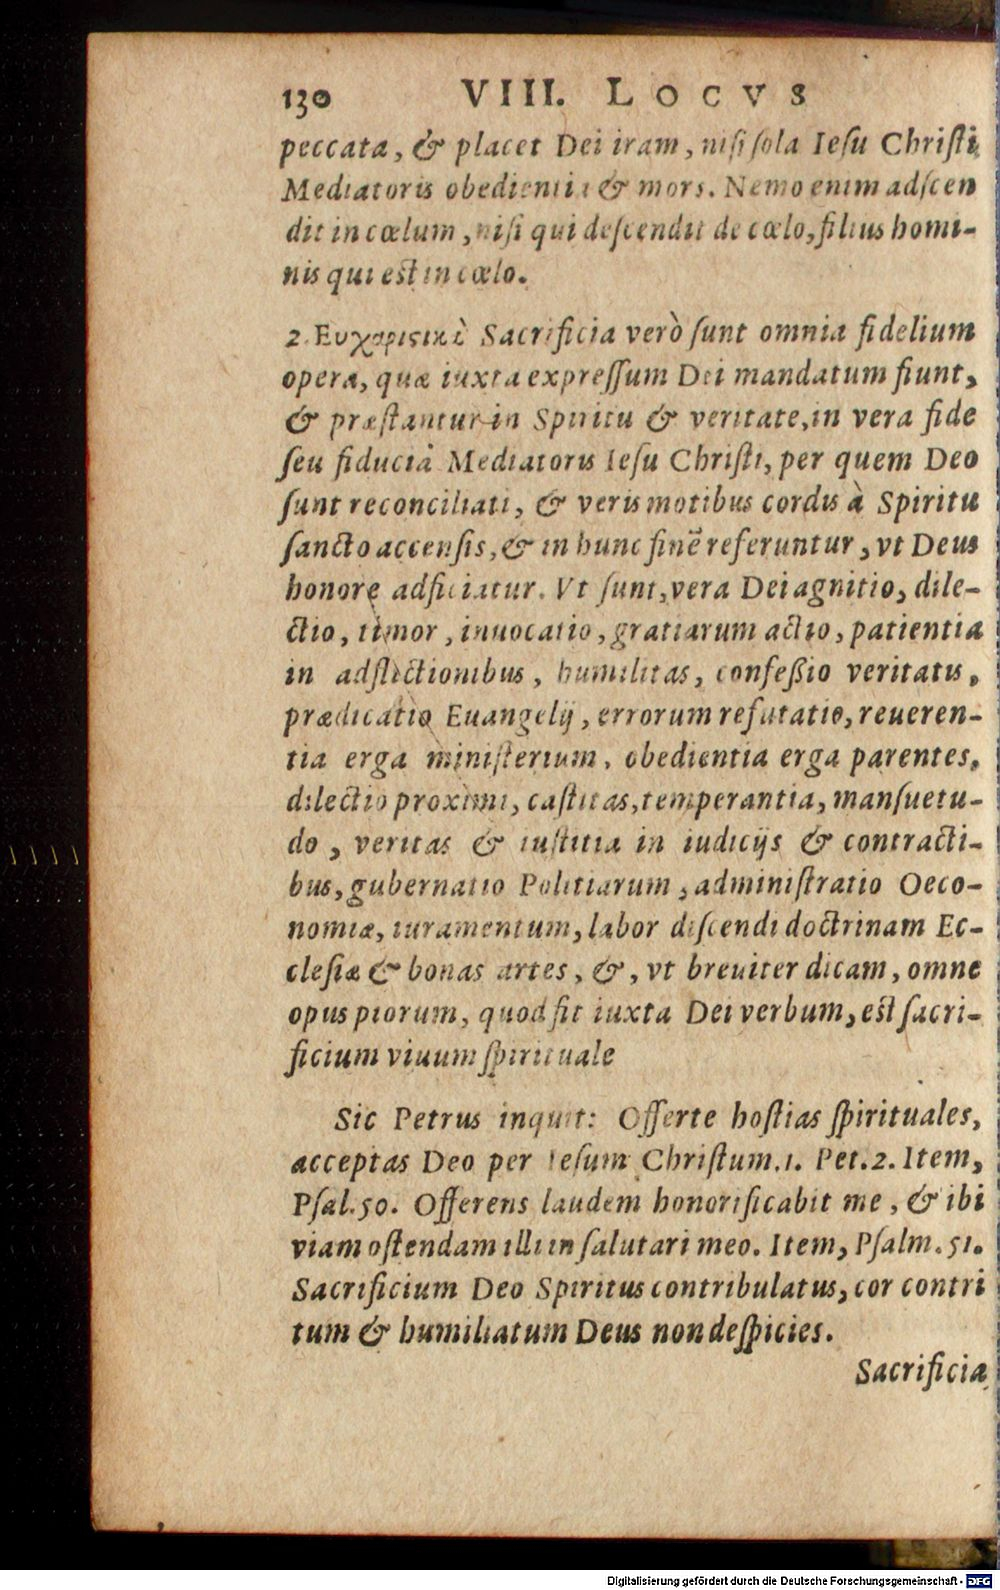 130 VIII. LOCVS
peccata, & placet Dei iram, nisi sola Iesu Christi
Mediatoris obedientia & mors. Nemo enim adscen
dit in cœlum, nisi qui descendit de cœlo, filius homi-
nis qui est in cœlo.
2. Ευχαριςικὰ Sacrificia verò sunt omnia fidelium
opera, quæ iuxta expressum Dei mandatum fiunt,
& præstantur in Spiritu & veritate, in vera fide
seu fiducia Mediatoris Iesu Christi, per quem Deo
sunt reconciliati, & veris motibus cordis à Spiritu
sancto accensis, & in hunc finẽ referuntur, vt Deus
honore adficiatur. Vt sunt, vera Dei agnitio, dile-
ctio, timor, inuocatio, gratiarum actio, patientia
in adflictionibus, humilitas, confeßio veritatis,
prædicatio Euangelij, errorum refutatio, reueren-
tia erga ministerium, obedientia erga parentes,
dilectio proximi, castitas, temperantia, mansuetu-
do, veritas & iustitia in iudicijs & contracti-
bus, gubernatio Politiarum, administratio Oeco-
nomiæ, iuramentum, labor discendi doctrinam Ec-
clesiæ & bonas artes, &, vt breuiter dicam, omne
opus piorum, quod fit iuxta Dei verbum, est sacri-
ficium viuum spirituale
Sic Petrus inquit: Offerte hostias spirituales,
acceptas Deo per Iesum Christum. 1. Pet. 2. Item,
Psal. 50. Offerens laudem honorificabit me, & ibi
viam ostendam illi in salutari meo. Item, Psalm. 51.
Sacrificium Deo Spiritus contribulatus, cor contri
tum & humiliatum Deus non despicies.
Sacrificia
Digitalisierung gefördert durch die Deutsche Forschungsgemeinschaft - DFG